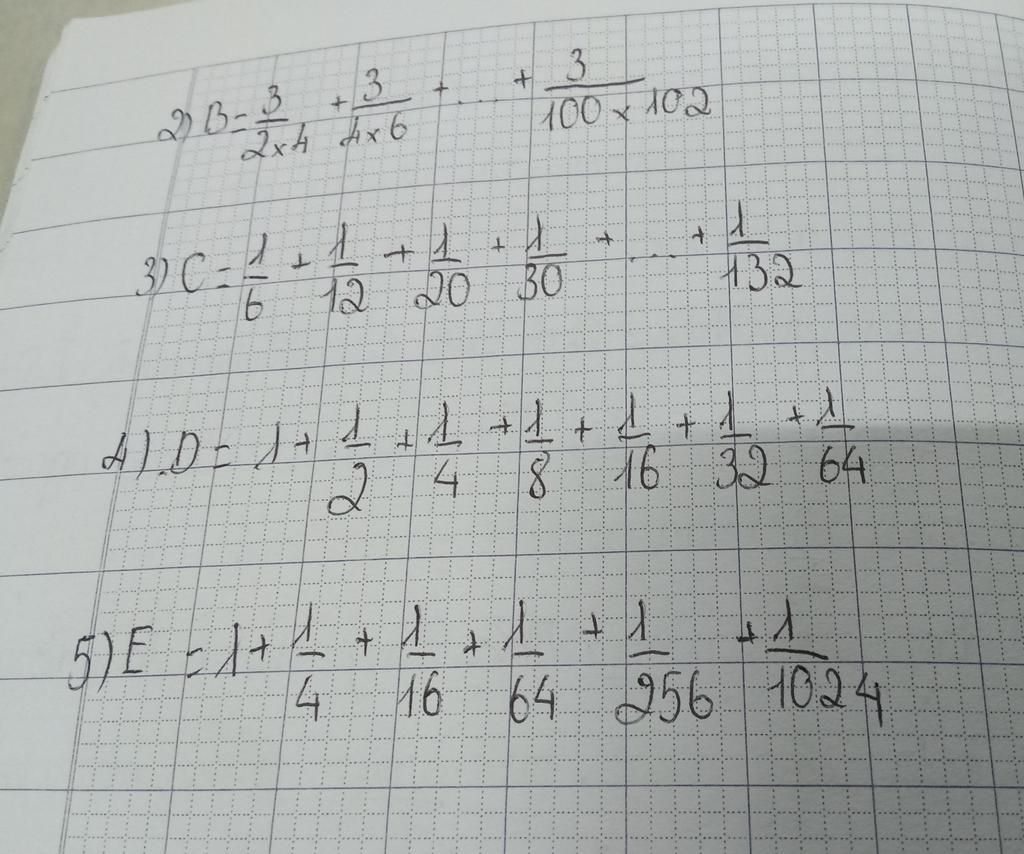 2) B = 3/2×4 + 3/4×6 + ... + 3/100×102
3) C = 1/6 + 1/12 + 1/20 + 1/30 + ... + 1/132
4) D = 1 + 1/2 + 1/4 + 1/8 + 1/16 + 1/32 + 1/64
5) E = 1 + 1/4 + 1/16 + 1/64 + 1/256 + 1/1024